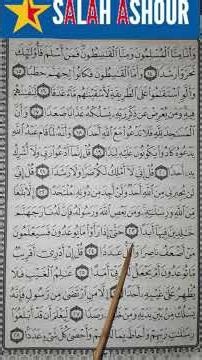 SALAH ASHOUR
وَأَنَّا مِنَّا ٱلْمُسْلِمُونَ وَمِنَّا ٱلْقَٰسِطُونَ فَمَنْ أَسْلَمَ فَأُو۟لَٰٓئِكَ
تَحَرَّوْا۟ رَشَدًا ١٤ وَأَمَّا ٱلْقَٰسِطُونَ فَكَانُوا۟ لِجَهَنَّمَ حَطَبًا ١٥
وَأَلَّوِ ٱسْتَقَٰمُوا۟ عَلَى ٱلطَّرِيقَةِ لَأَسْقَيْنَٰهُم مَّآءً غَدَقًا ١٦ لِّنَفْتِنَهُمْ
فِيهِ وَمَن يُعْرِضْ عَن ذِكْرِ رَبِّهِۦ يَسْلُكْهُ عَذَابًا صَعَدًا ١٧ وَأَنَّ
ٱلْمَسَٰجِدَ لِلَّهِ فَلَا تَدْعُوا۟ مَعَ ٱللَّهِ أَحَدًا ١٨ وَأَنَّهُۥ لَمَّا قَامَ عَبْدُ ٱللَّهِ
يَدْعُوهُ كَادُوا۟ يَكُونُونَ عَلَيْهِ لِبَدًا ١٩ قُلْ إِنَّمَآ أَدْعُوا۟ رَبِّى وَلَآ أُشْرِكُ
بِهِۦٓ أَحَدًا ٢٠ قُلْ إِنِّى لَآ أَمْلِكُ لَكُمْ ضَرًّا وَلَا رَشَدًا ٢١ قُلْ إِنِّى
لَن يُجِيرَنِى مِنَ ٱللَّهِ أَحَدٌ وَلَنْ أَجِدَ مِن دُونِهِۦ مُلْتَحَدًا ٢٢ إِلَّا بَلَٰغًا
مِّنَ ٱللَّهِ وَرِسَٰلَٰتِهِۦ وَمَن يَعْصِ ٱللَّهَ وَرَسُولَهُۥ فَإِنَّ لَهُۥ نَارَ جَهَنَّمَ
خَٰلِدِينَ فِيهَآ أَبَدًا ٢٣ حَتَّىٰٓ إِذَا رَأَوْا۟ مَا يُوعَدُونَ فَسَيَعْلَمُونَ
مَنْ أَضْعَفُ نَاصِرًا وَأَقَلُّ عَدَدًا ٢٤ قُلْ إِنْ أَدْرِىٓ أَقَرِيبٌ
مَّا تُوعَدُونَ أَمْ يَجْعَلُ لَهُۥ رَبِّىٓ أَمَدًا ٢٥ عَٰلِمُ ٱلْغَيْبِ فَلَا
يُظْهِرُ عَلَىٰ غَيْبِهِۦٓ أَحَدًا ٢٦ إِلَّا مَنِ ٱرْتَضَىٰ مِن رَّسُولٍ فَإِنَّهُۥ
رِسَٰلَٰتِ رَبِّهِمْ وَأَحَاطَ بِمَا لَدَيْهِمْ وَأَحْصَىٰ كُلَّ شَىْءٍ عَدَدًۢا ٢٨